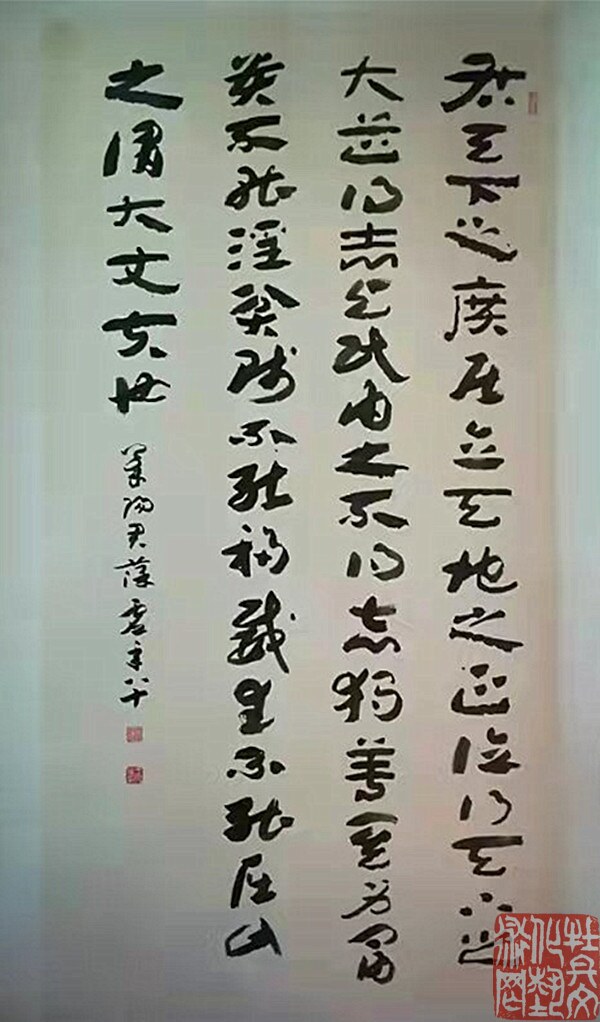 居天下之廣居立天地之正位行天下之
大道得志與民由之不得志獨善其身富
貴不能淫貧賤不能移威武不能屈此
之謂大丈夫也
虛年八十